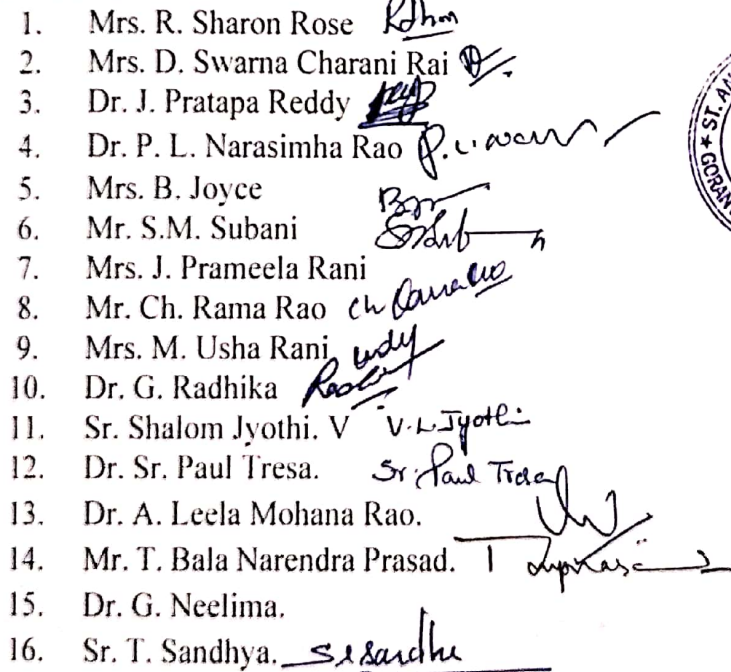 1. Mrs. R. Sharon Rose
2. Mrs. D. Swarna Charani Rai
3. Dr. J. Pratapa Reddy
4. Dr. P. L. Narasimha Rao
5. Mrs. B. Joyce
6. Mr. S.M. Subani
7. Mrs. J. Prameela Rani
8. Mr. Ch. Rama Rao Ch Ramarao
9. Mrs. M. Usha Rani
10. Dr. G. Radhika
11. Sr. Shalom Jyothi. V V.L. Jyothi
12. Dr. Sr. Paul Tresa. Sr. Paul Tresa
13. Dr. A. Leela Mohana Rao.
14. Mr. T. Bala Narendra Prasad.
15. Dr. G. Neelima.
16. Sr. T. Sandhya.
* ST. AN
GORAN